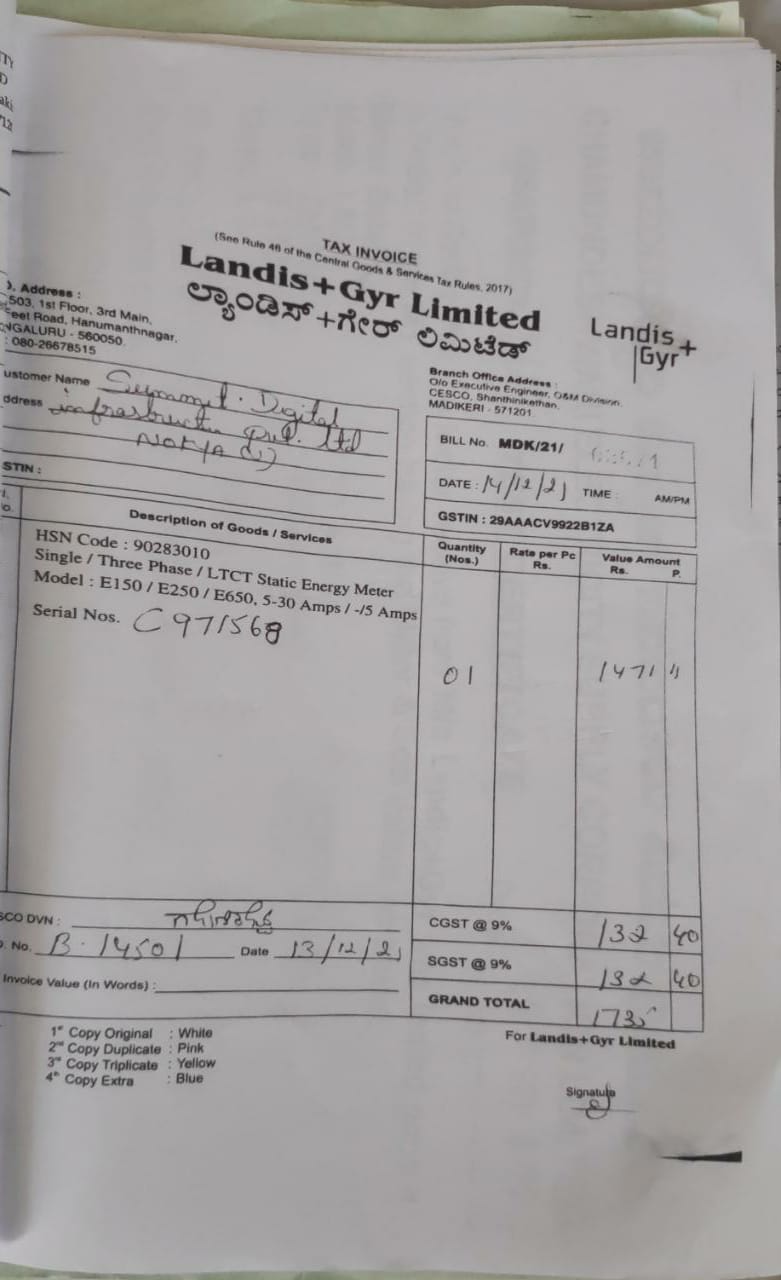 TY
D
aki
712
TAX INVOICE
(See Rule 46 of the Central Goods & Services Tax Rules, 2017)
Landis+Gyr Limited
ಲ್ಯಾಂಡಿಸ್+ಗೇರ್ ಲಿಮಿಟೆಡ್
Landis+
Gyr
. Address :
503, 1st Floor, 3rd Main,
eet Road, Hanumanthnagar,
NGALURU - 560050.
: 080-26678515
Branch Office Address :
O/o Executive Engineer, O&M Division,
CESCO, Shanthinikethan,
MADIKERI - 571201.
ustomer Name Summit. Digital
ddress infrastructu pvt. ltd
STIN :
BILL No. MDK/21/
DATE : 14/12/21 TIME : AM/PM
GSTIN : 29AAACV9922B1ZA
o. Description of Goods / Services Quantity (Nos.) Rate per Pc Rs. Value Amount Rs. P.
HSN Code : 90283010
Single / Three Phase / LTCT Static Energy Meter
Model : E150 / E250 / E650, 5-30 Amps / -/5 Amps
Serial Nos. C971568
01 1471 11
SCO DVN :
. No. B. 14501 Date 13/12/21
Invoice Value (In Words) :
CGST @ 9% 132 40
SGST @ 9% 132 40
GRAND TOTAL 1735
1st Copy Original : White
2nd Copy Duplicate : Pink
3rd Copy Triplicate : Yellow
4th Copy Extra : Blue
For Landis+Gyr Limited
Signature